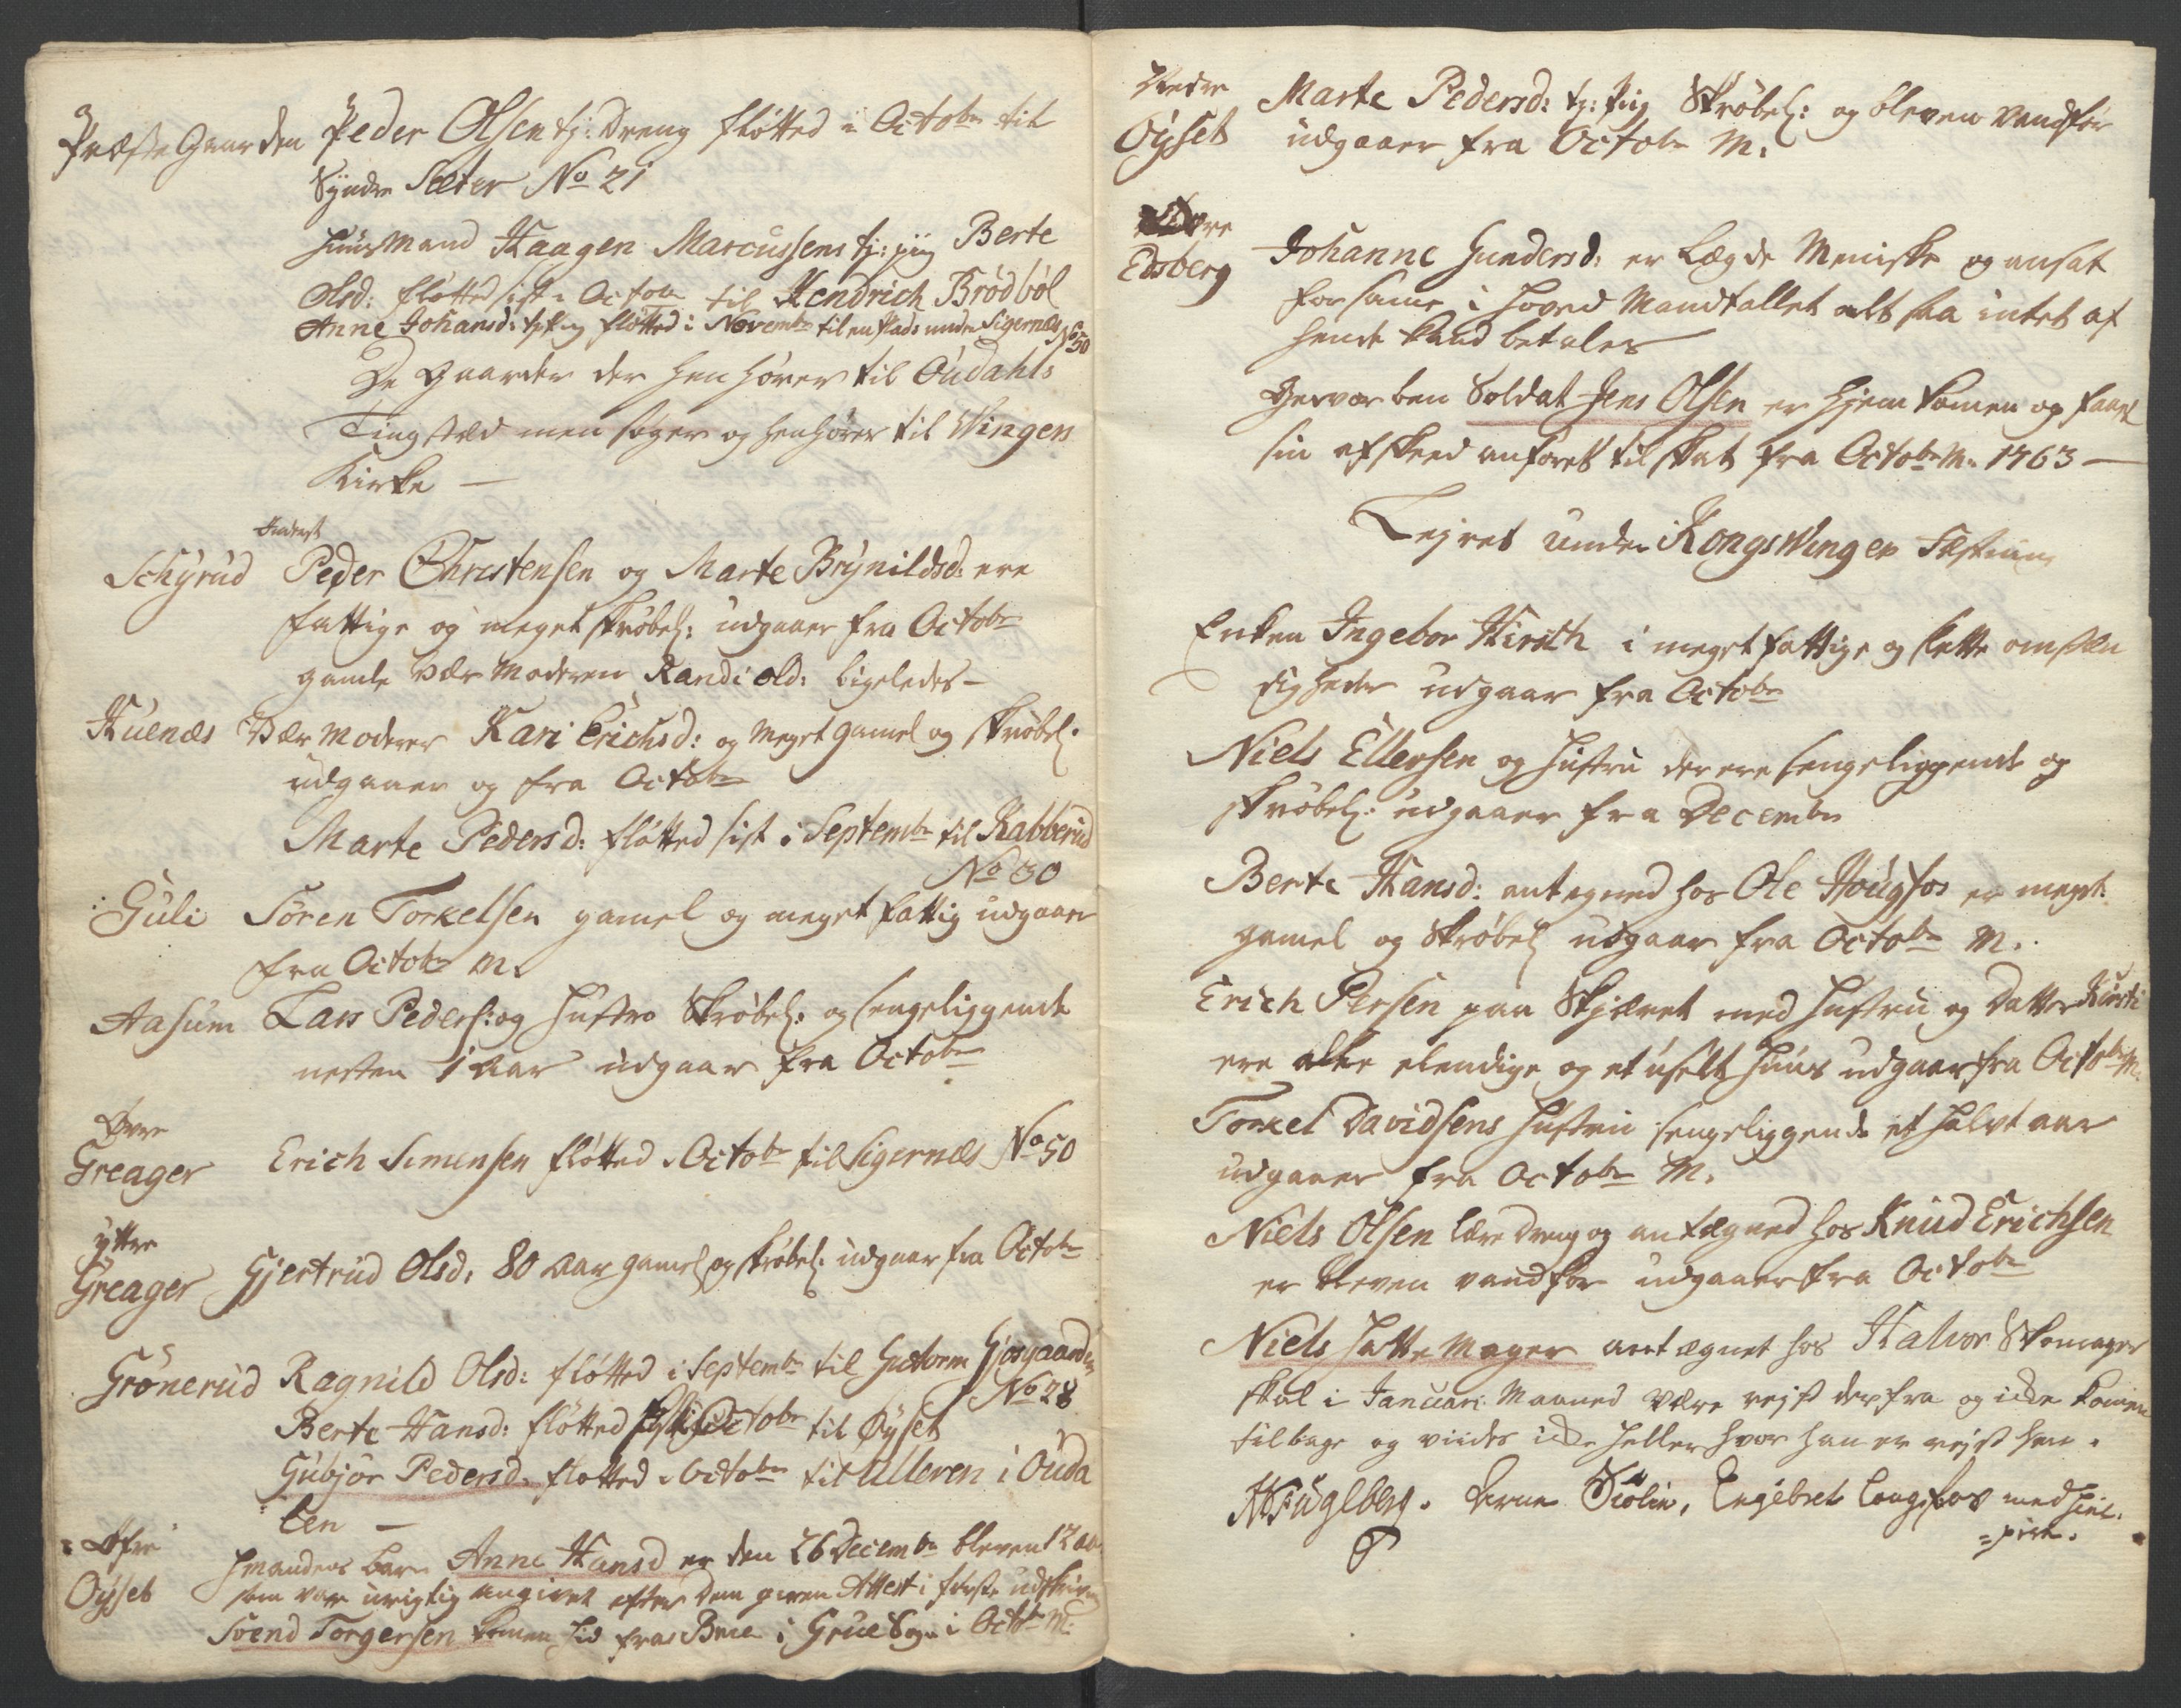 Præste Gaarden Peder Olsen tj: dreng fløtted i Octobr til
Syndre Sæter No 21
Huusmand Haagen Marcussens tj: pig Berte
Olsd: fløtted sist i Octobr til Hendrich Brødbøl
Anne Johansd: tj: pig fløtted i Novembr til en plads under Sigernæs No 50
De Gaarder der hen hører til Oudahls
Tingsted men søger og henhører til Wingers
Kirke —
Inderst
Schyrud Peder Christensen og Marte Brynildsd: ere
fattige og meget skrøbel: udgaaer fra Octobr
gamle Vær Moderen Randi Old: ligeledes —
Huenæs Vær Moderer Kari Erichsd: og meget gamel og skrøbel:
udgaaer og fra Octobr
Marte Pedersd: fløtted sist i Septembr til Rabberud
No 30
Guli Søren Torkelsen gamel og meget fattig udgaar
fra Octobr M.
Aasum Lars Peders: og Hustro Skrøbel: og sengeliggende
nesten 1 Aar udgaar fra Octobr
Øvre
Greager Erich Simensen fløtted i Octobr til Sigernæs No 50
yttre
Greager Gjertrud Olsd: 80 Aar gamel og skrøbel: udgaar fra Octobr
Grønerud Ragnild Olsd: fløtted i Septembr til Guttorm Gjøsgaarden
No 28
Berte Hansd: fløtted Octobr til Øyset
Gubjør Pedersd: fløtted i Octobr til Ulleren i Ouda
len —
Øfre
Øyset Hmandens barn Anne Hansd er den 26 Decembr bleven 12 aar
som var urigtig angivet efter den given Attest i første udskrivn
Svend Torgersen komen hid fra i Grue Sogn i Octobr M:
Nedre
Øyset Marte Pedersd: tj: pig Skrøbel: og bleven vandfør
udgaaer fra Octobr M.
Edsberg Johanne Gundersd: er Lægde Meniske og ansat
for same i Hoved Mandtallet alt saa intet af
hende kand betales
Gevorben Soldat Jens Olsen er hjem komen og faaet
sin afskeed anføret til skat fra Octobr M. 1763 —
Lejret under Kongswinger Fæstning
Enken Ingebor Hirsch i meget fattige og slette omstæn
digheder udgaar fra Octobr
Niels Ellevsen og Hustru der ere sengeliggende og
skrøbel: udgaaer fra Decembr
Berte Hansd: antegned hos Ole Hougfos er meget
gamel og Skrøbel udgaar fra Octobr M.
Erich Persen paa Skjæret med Hustru og Datter Kirsti
ere alle elendige og et uselt Huus udgaar fra Octobr M.
Torkel Davidsens Hustru sengeliggende et halvt aar
udgaaer fra Octobr M.
Niels Olsen lære dreng og antegned hos Knud Erichsen
er bleven vandfør udgaaer fra Octobr
Niels Hatte Mager antegnet hos Halvor Skomager
skal i Januari Maaned være rejst derfra og icke komen
tilbage og vides icke heller hvor han er rejst hen.
Engebret Longfos med